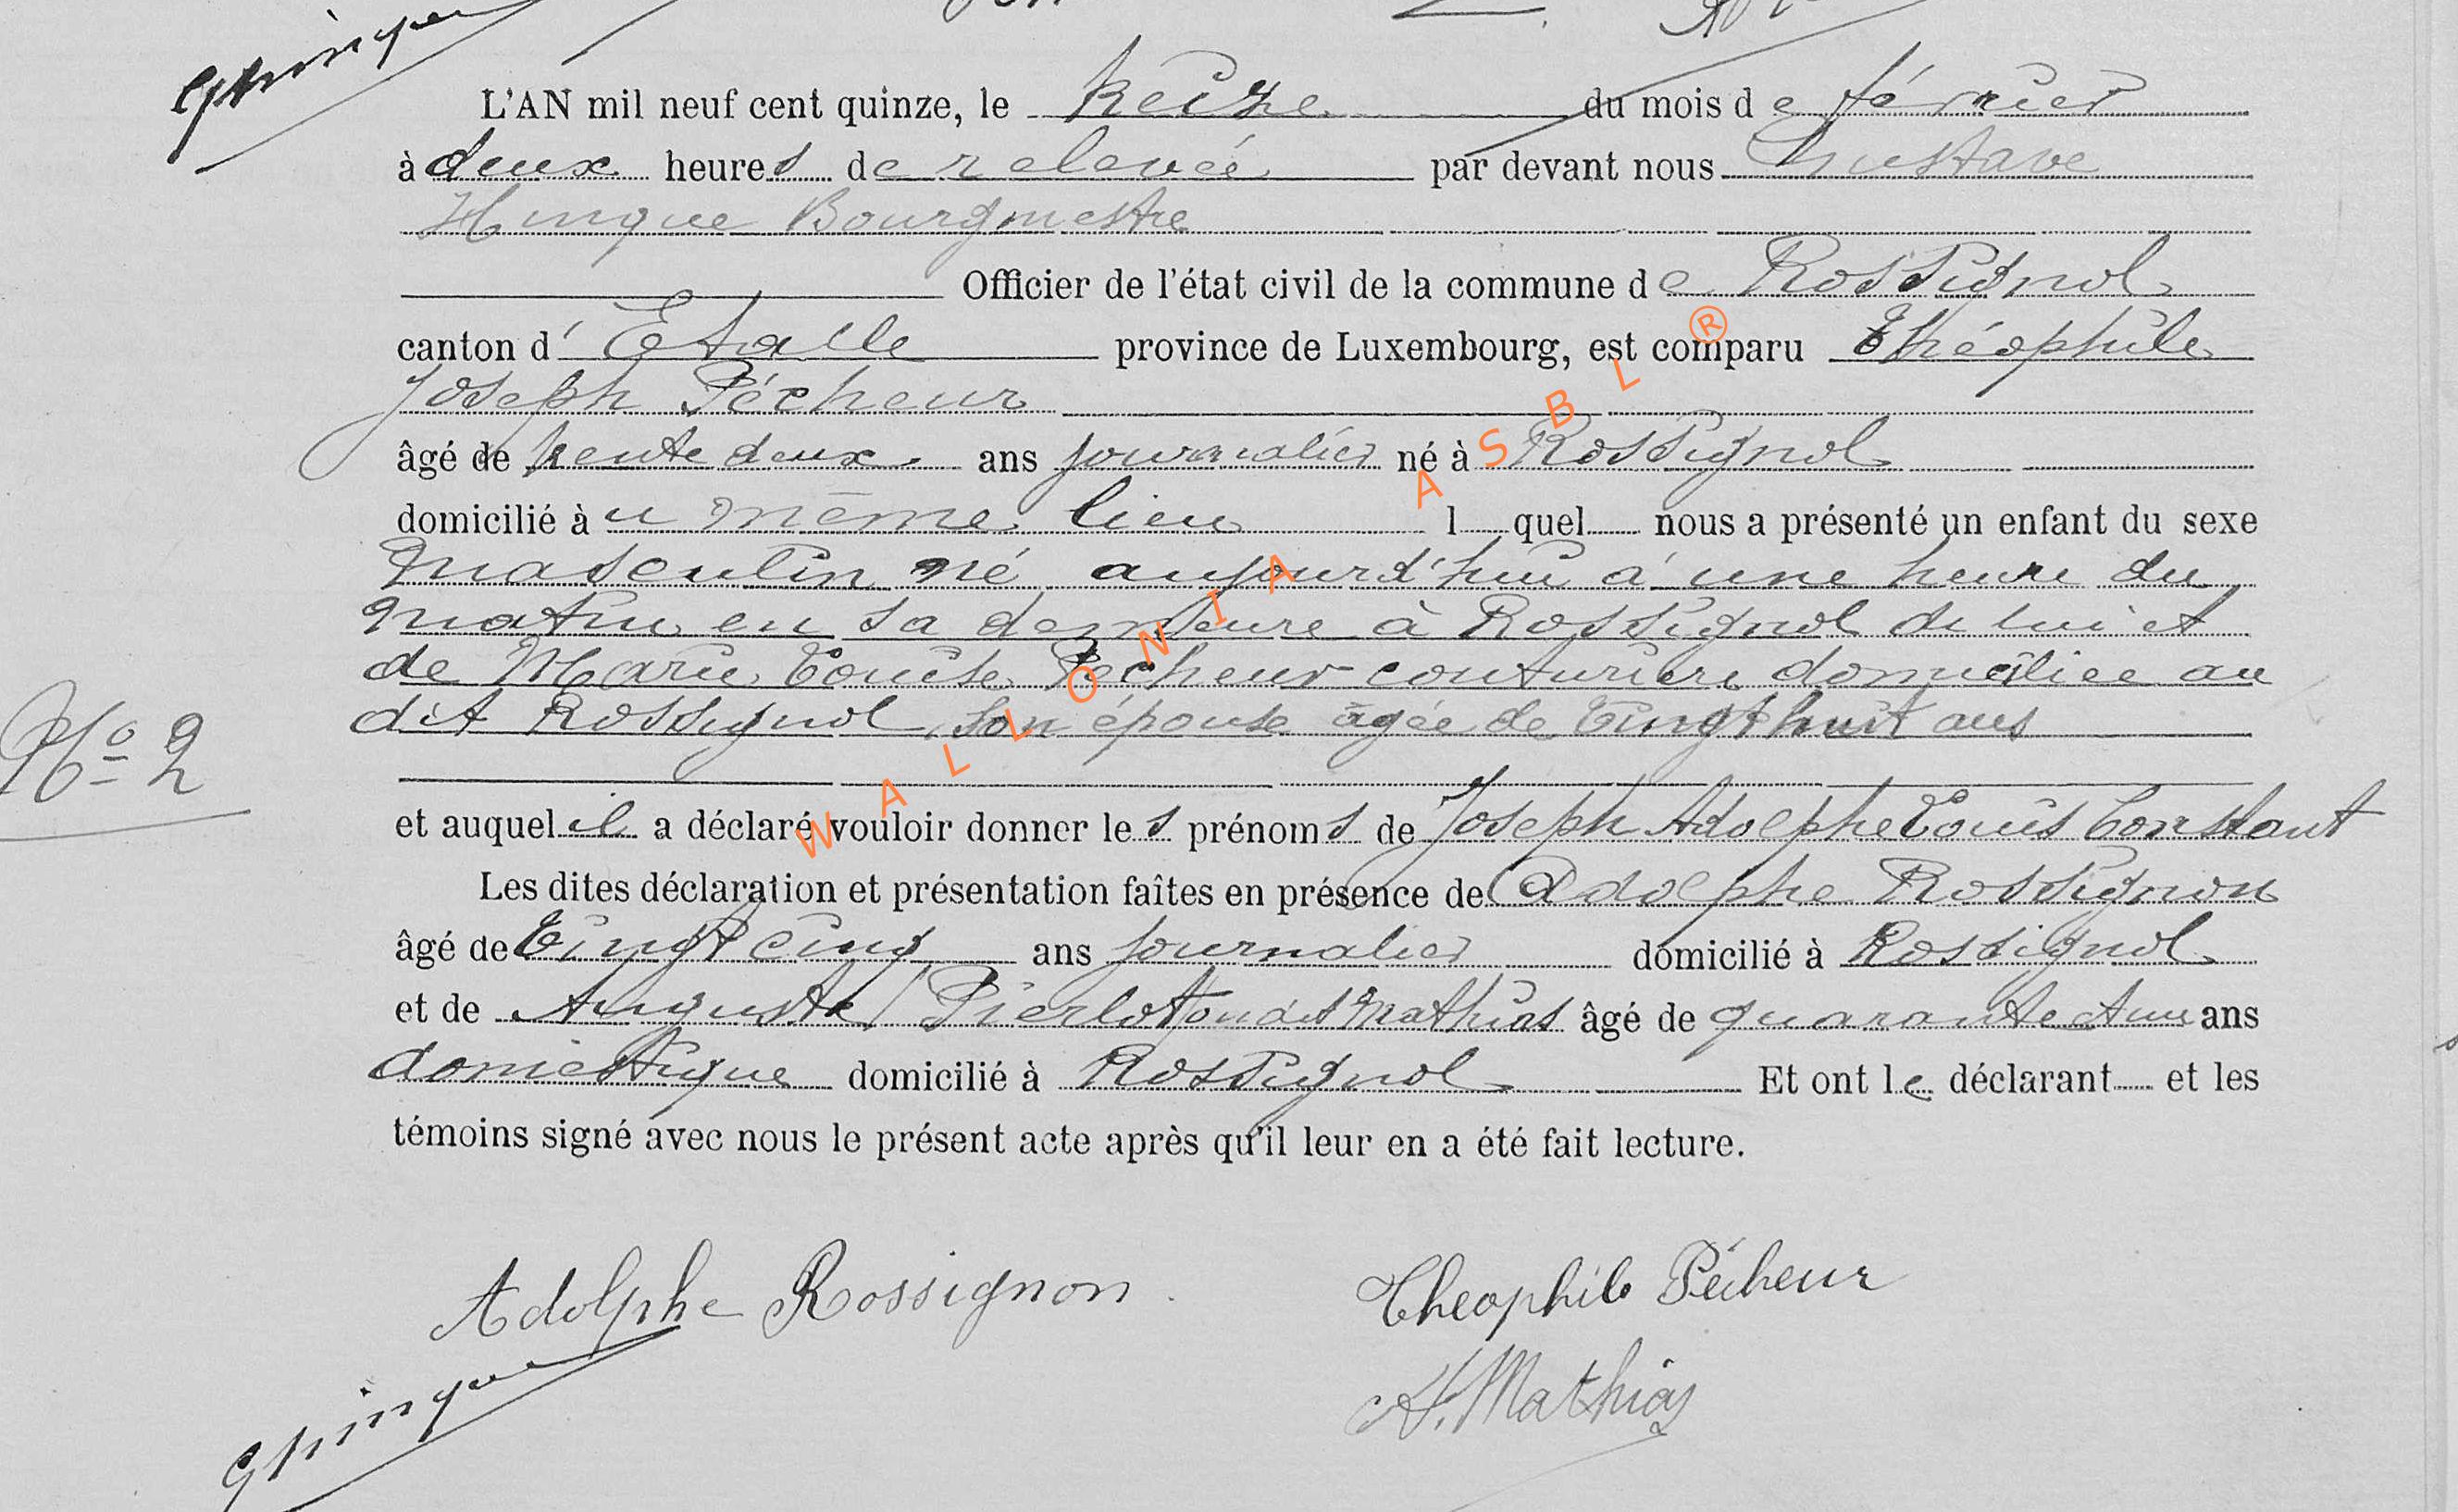 L'AN mil neuf cent quinze, le treize du mois de février
à deux heures de relevée par devant nous Gustave
Hinque Bourgmestre
Officier de l'état civil de la commune de Rossignol
canton d'Etalle province de Luxembourg, est comparu Théophile
Joseph Pécheur
âgé de trente deux ans journalier né à Rossignol
domicilié au même lieu l quel nous a présenté un enfant du sexe
masculin né aujourd'hui à une heure du
matin en sa demeure à Rossignol de lui et
de Marie Louise Pecheur couturière domiciliée au
dit Rossignol, son épouse âgée de vingt huit ans
No 2
et auquel il a déclaré vouloir donner les prénoms de Joseph Adolphe Louis Constant
Les dites déclaration et présentation faîtes en présence de Adolphe Rossignon
âgé de vingt cinq ans journalier domicilié à Rossignol
et de Auguste Pierlot ou dit Mathias âgé de quarante et un ans
domestique domicilié à Rossignol Et ont le déclarant et les
témoins signé avec nous le présent acte après qu'il leur en a été fait lecture.
Adolphe Rossignon Théophile Pécheur
A. Mathias
GHinque
WALLONIA ASBL ®